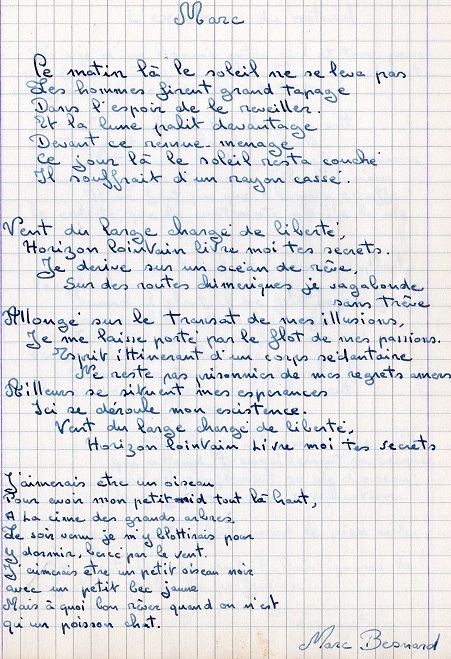 Marc
Ce matin là le soleil ne se leva pas
Les hommes firent grand tapage
Dans l'espoir de le reveiller.
Et la lune palit davantage
Devant ce remue-menage
Ce jour là le soleil resta couché
Il souffrait d'un rayon cassé.
Vent du large chargé de liberté,
Horizon loinvain livre moi tes secrets.
Je derive sur un océan de rêve,
Sur des routes chimeriques je vagabonde
sans trêve
Allongé sur le transat de mes illusions,
Je me laisse porté par le flot de mes passions.
Esprit ittinerant d'un corps sédantaire
Ne reste pas prisonnier de mes regrets amers
Ailleurs se situent mes esperences
Ici se déroule mon existence.
Vent du large chargé de liberté,
Horizon loinvain Livre moi tes secrets
J'aimerais etre un oiseau
Pour avoir mon petit nid tout là haut,
A La cime des grands arbres
Le soir venu je m'y blottirais pour
y dormir, bercé par le vent.
J'aimerais etre un petit oiseau noir
avec un petit bec jaune
Mais à quoi bon rêver quand on n'est
qu'un poisson chat.
Marc Besnard